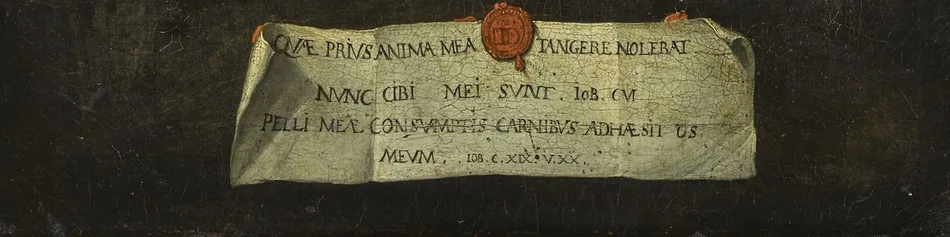 QVÆ PRIVS ANIMA MEA TANGERE NOLEBAT
NVNC CIBI MEI SVNT. IOB. CVI
PELLI MEÆ CONSVMPTIS CARNIBVS ADHÆSIT US
MEVM. IOB. C. XIX. V. XX.